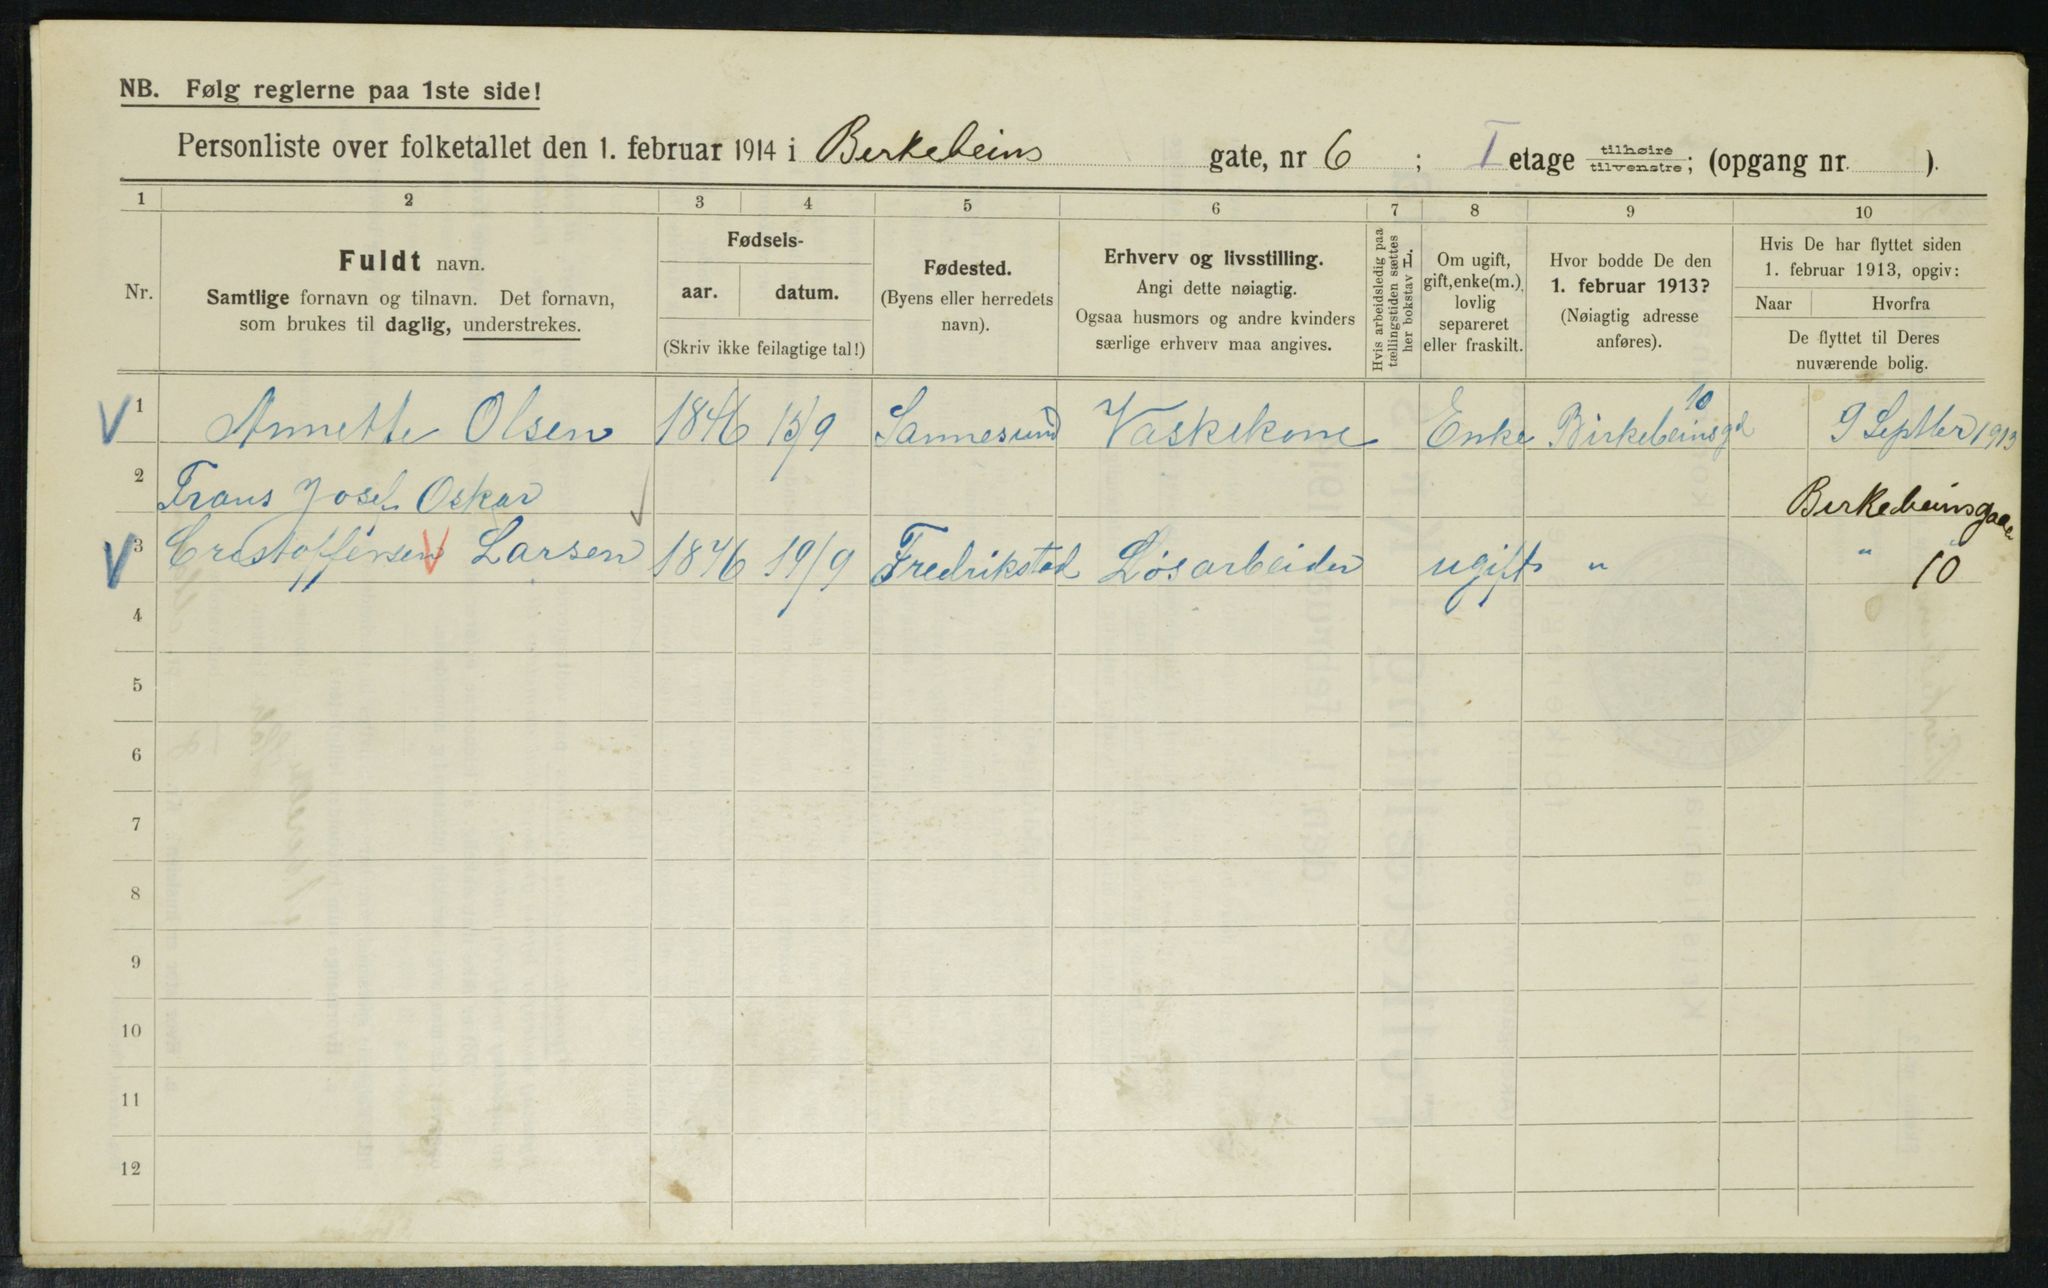 NB. Følg reglerne paa 1ste side!
Personliste over folketallet den 1. februar 1914 i Berkebeins gate, nr 6 ; I etage tilhøire tilvenstre; (opgang nr. ).
1 2 3 4 5 6 7 8 9 10
Nr.
Fuldt navn.
Samtlige fornavn og tilnavn. Det fornavn,
som brukes til daglig, understrekes.
Fødsels-
aar. datum.
(Skriv ikke feilagtige tal!)
Fødested.
(Byens eller herredets
navn).
Erhverv og livsstilling.
Angi dette nøiagtig.
Ogsaa husmors og andre kvinders
særlige erhverv maa angives.
Hvis arbeidsledig paa
tællingstiden sættes
her bokstav L.
Om ugift,
gift, enke(m.),
lovlig
separeret
eller fraskilt.
Hvor bodde De den
1. februar 1913?
(Nøiagtig adresse
anføres).
Hvis De har flyttet siden
1. februar 1913, opgiv:
Naar Hvorfra
De flyttet til Deres
nuværende bolig.
1 Annette Olsen 1846 15/9 Sannesund Vaskekone Enke Birkebeinsgd 10 9 Septber 1913
2 Frans Josef Oskar Berkebeinsgade
3 Crestoffersen Larsen 1846 19/9 Fredrikstad Løsarbeider ugift " " 10
4
5
6
7
8
9
10
11
12